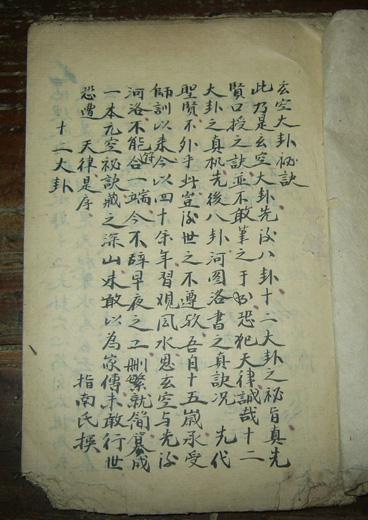 玄空大卦秘訣
此乃是玄空大卦先后八卦十二大卦之秘旨真先
賢口授之訣並不敢筆之于書恐犯天律誠哉十二
大卦之真机先後八卦河图洛書之真訣況 先代
聖賢不外乎此豈后世之不遵欤吾自十五歲承受
師訓以來今以四十余年習观風水思玄空与先后
河洛不能符合一端今不辞早夜之工删繁就簡
一本元空秘訣藏之深山未敢以為家傳未敢行世
恐遭 天律是序 指南氏撰
十二大卦